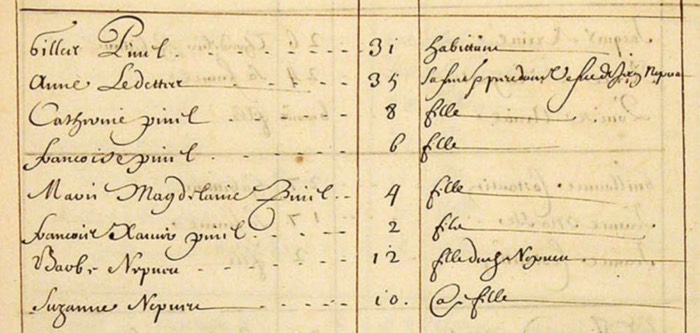 Gilles Pinel 31 habittant
Anne Ledettre 35 sa femme Nepveu
Catherine pinel 8 fille
francoise pinel 6 fille
Marie Magdelaine Pinel 4 fille
francois Xavier pinel 2 fils
Barbe Nepveu 12 fille dud. Nepveu
Suzanne Nepveu 10. fille